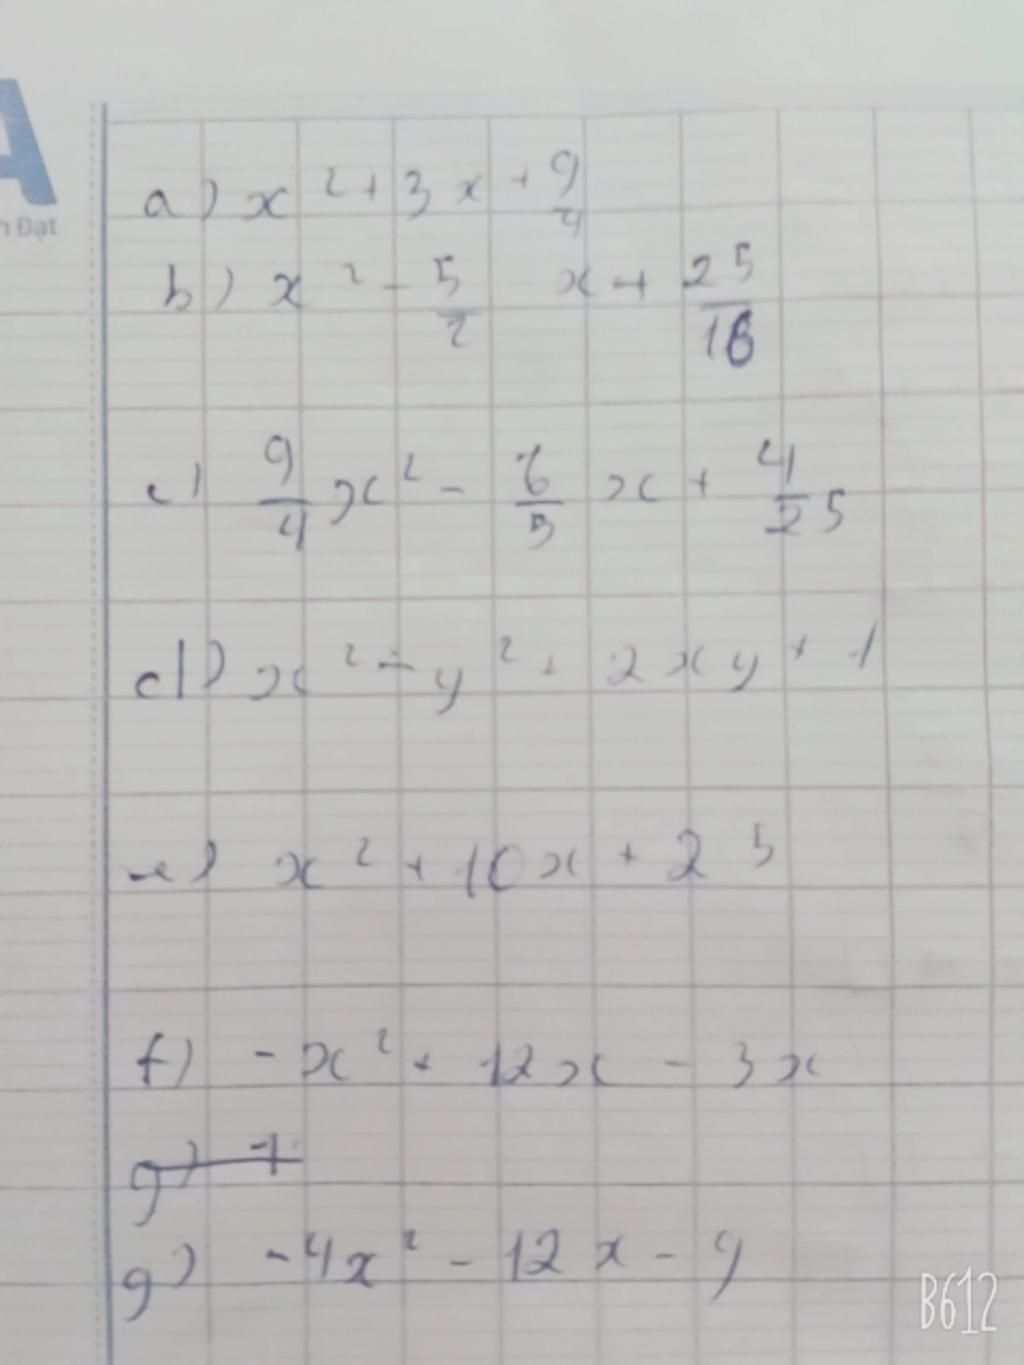 A
n Đạt
a) x² + 3x + 9/4
b) x² - 5/2 x + 25/16
c) 9/4 x² - 6/5 x + 4/25
d) x² + y² + 2xy + 1
e) x² + 10x + 25
f) - x² + 12x - 3x
g) -4x² - 12x - 9
B612